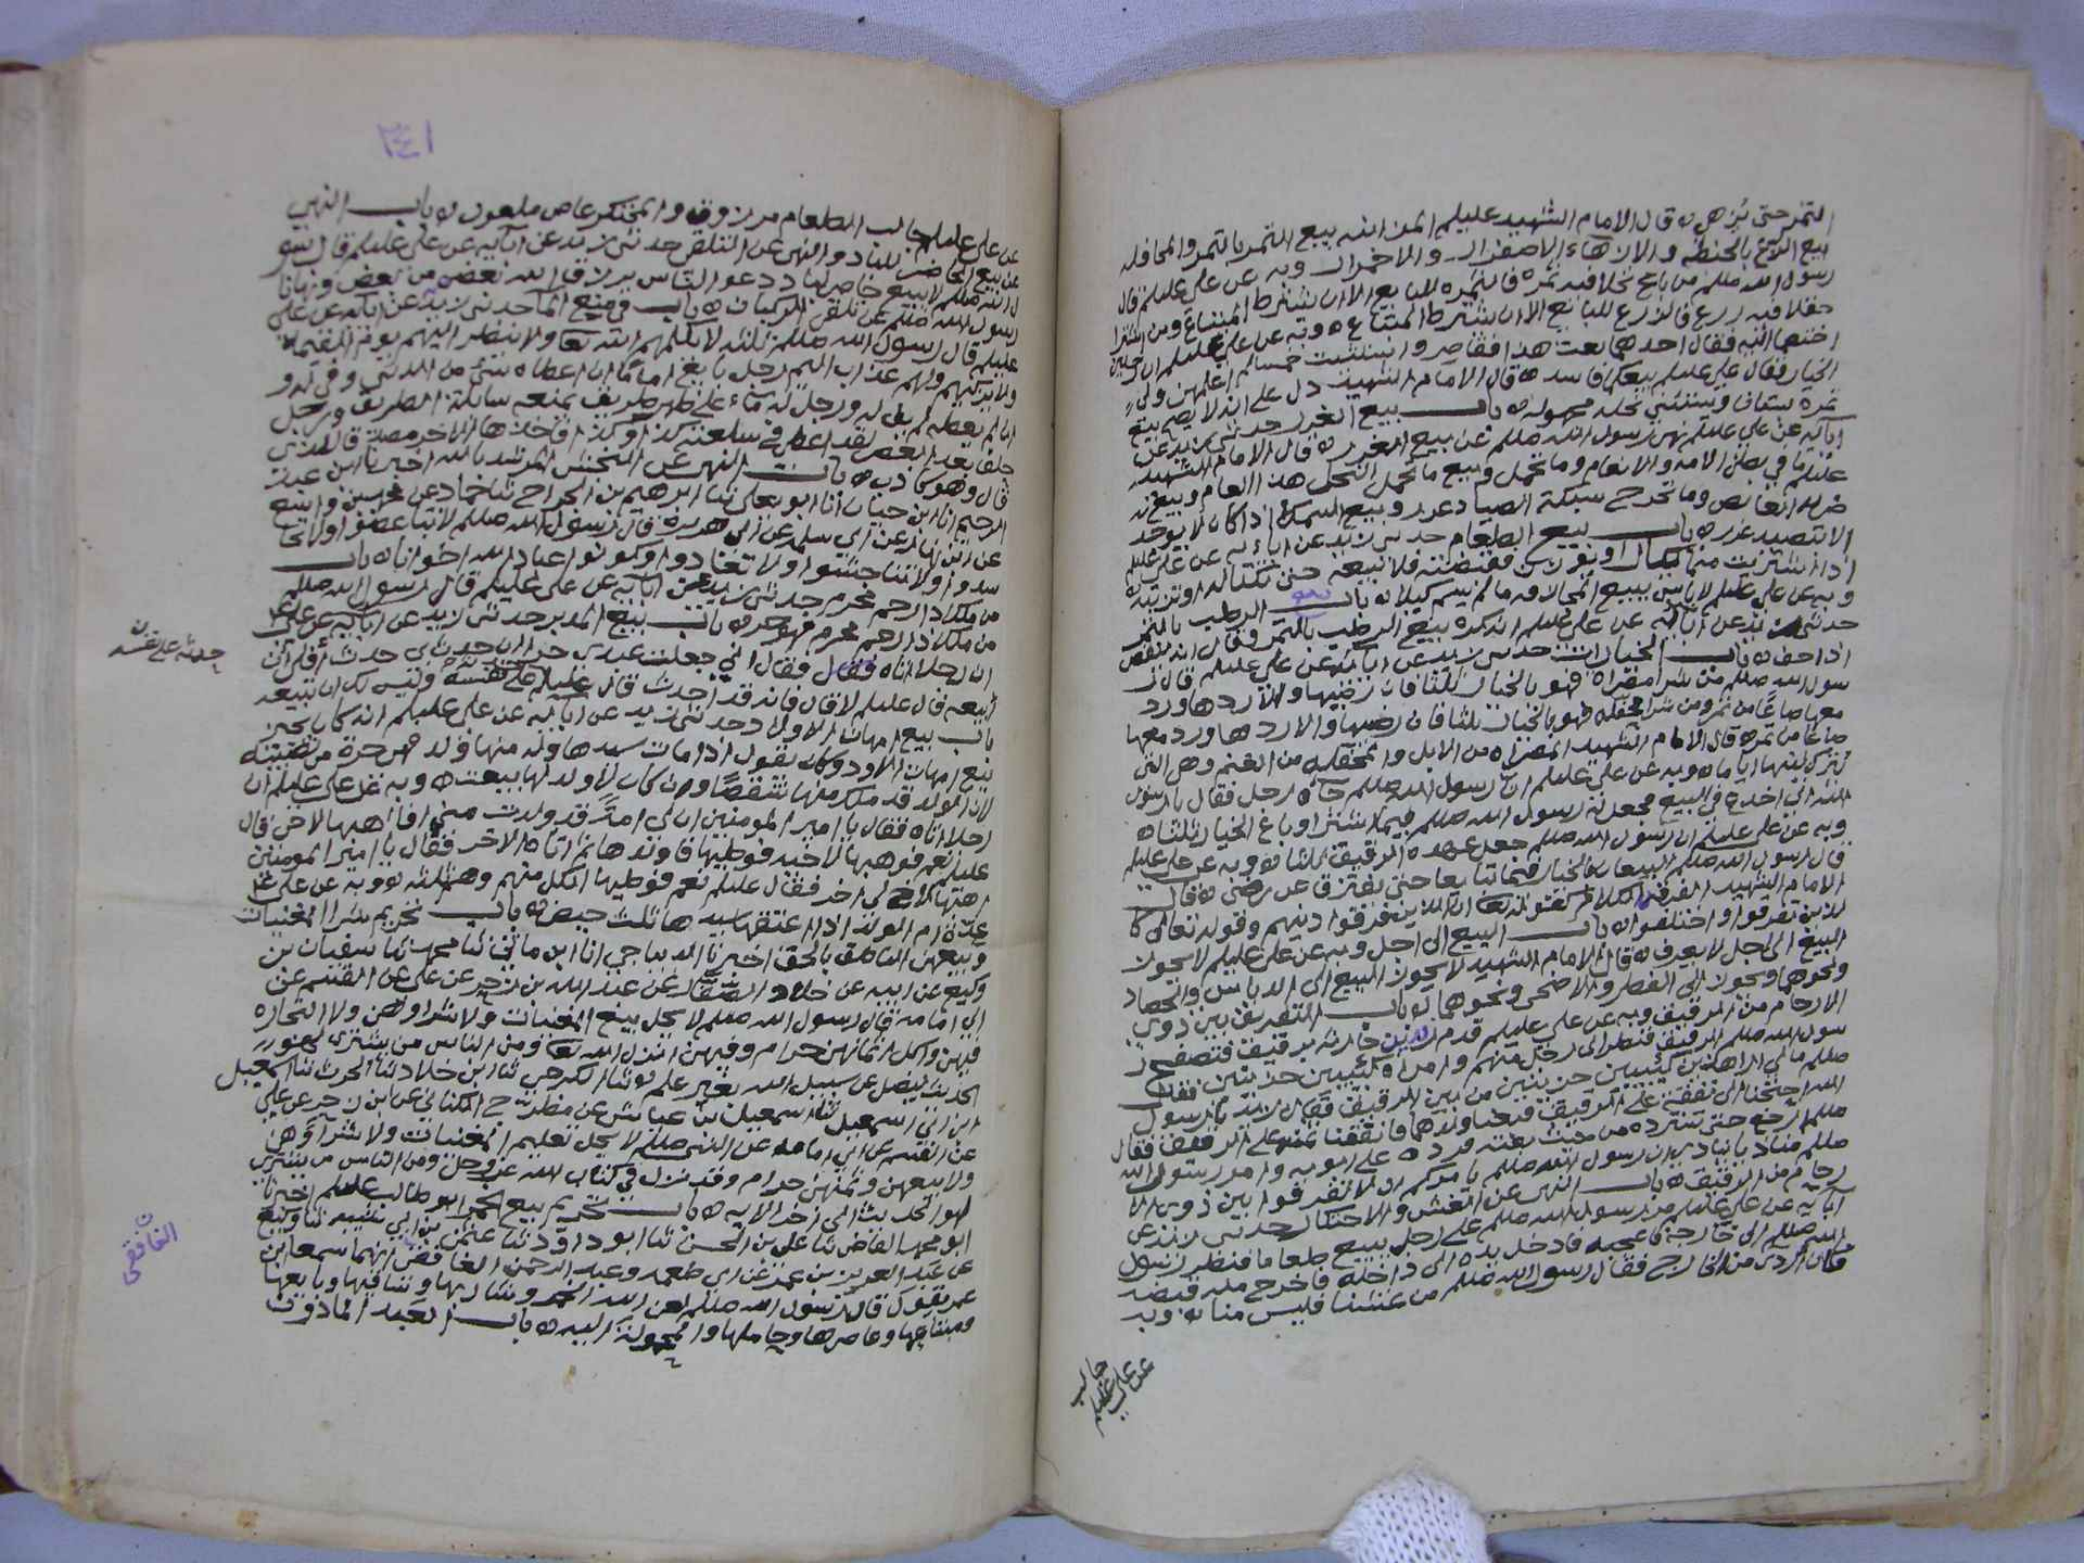 التمر حتى يزهي ه قال الامام الشهيد عليلم المزابنه بيع التمر بالتمر والمحاقله
بيع الزرع بالحنطه والازهاء الاصفرار والاحمرار وبه عن علي عليلم قال
رسول الله صللم من باع نخلا فيه ثمره فالثمره للبايع الا ان يشترط المبتاع ومن اشترا
حقلا فيه زرع فالزرع للبائع الا ان يشترط المبتاع ه وبه عن علي عليلم ان رجلين
اختصما اليه فقال احدهما بعت هذا فقاصر واستثنيت خمسا لم اعلمهن ولي
الخيار فقال علي عليلم بيعكما فاسد ه قال الامام الشهيد دل على انه لا يصح بيع
ثمرة بستان ويستثني نخله مجهوله ه باب بيع الغرر حدثني زيد عن
ابايه عن علي عليلم نهى رسول الله صللم عن بيع الغرر ه قال الامام الشهيد
عليلم ما في بطن الامه والانعام وما تحمل وبيع ما تحمل النخل هذا العام وبيع
ضربه الغائص وما تخرج شبكة الصياد غرر وبيع السمك اذا كان لا يوخذ
الا بتصيد غرر ه باب بيع الطعام حدثني زيد عن ابائه عن علي عليلم
اذا اشتريت منها بكيل او بوزن فقبضته فلا تبعه حتى تكتاله او تزنه
وبه عن علي عليلم لا باس ببيع المجازفه ما لم يسم كيلا ه باب الرطب بالتمر
حدثني زيد عن ابائه عن علي عليلم انه كره بيع الرطب بالتمر وقال انه ينقص
اذا جف ه باب الخيارات حدثني زيد عن ابائه عن علي عليلم قال
رسول الله صللم من شرا مصراه فهو بالخيار ثلثا فان رضيها والا ردها ورد
معها صاعا من تمر ومن شرا محفله فهو بالخيار ثلثا فان رضيها والا ردها ورد معها
صاعا من تمر ه قال الامام الشهيد المصراه من الابل والمحفله من الغنم وهي التي
تترك لبنها اياما ه وبه عن علي عليلم ان رسول الله صللم جآه رجل فقال يا رسول
الله اني اخدع في البيع فجعل له رسول الله صللم فيما اشترا او باع الخيار ثلثا ه
وبه عن علي عليلم ان رسول الله صللم جعل عهدة الرقيق ثلثا ه وبه عن علي عليلم
قال رسول الله صللم البيعان بالخيار فيما تبايعا حتى يفترقا عن رضى ه قال
الامام الشهيد الفرقه بالكلام كقوله تعا ان الذين فرقوا دينهم وقوله تعالى كا
لذين تفرقوا واختلفوا ه باب البيع الى اجل وبه عن علي عليلم لا يجوز
البيع الى اجل لا يعرف ه قال الامام الشهيد لا يجوز البيع الى الدياس والحصاد
ونحوها ويجوز الى الفطر والاضحى ونحوهما ه باب التفريق بين ذوي
الارحام من الرقيق وبه عن علي عليلم قدم زيد بن حارثه برقيق فتصفح ر
سول الله صللم الرقيق فنظر الى رجل منهم وامراه كئيبين حزينين فقال
صللم مالي اراهذين كئيبين حزينين من بين الرقيق فقال زيد يا رسول
الله احتجنا الى نفقة على الرقيق فبعنا ولدهما فانفقنا ثمنه على الرقيق فقال
صللم ارجع حتى تسترده من حيث بعته فرده على ابويه وامر رسول الله
صللم مناديا ينادي ان رسول الله صللم يامركم ان لا تفرقوا بين ذوي الا
رحام من الرقيق ه باب النهي عن الغش والاحتكار حدثني زيد عن
ابائه عن علي عليلم مر رسول الله صللم على رجل يبيع طعاما فنظر رسول
الله صللم الى خارجه فاعجبه فادخل يده الى داخله فاخرج منه قبضه
فكان اردى من الخارج فقال رسول الله صللم من غشنا فليس منا ه وبه
عن علي عليلم جالب
٣٤١
عن علي عليلم جالب الطعام مرزوق والمحتكر عاص ملعون ه باب النهي
عن بيع الحاضر للباد والنهي عن التلقي حدثني زيد عن ابائه عن علي عليلم قال رسو
ل الله صللم لا يبيع حاضر لباد دعو الناس يرزق الله بعضهم من بعض ونهانا
رسول الله صللم عن تلقي الركبان ه باب في منع الما حدثني زيد عن ابائه عن علي
عليلم قال رسول الله صللم ثلثه لا يكلمهم الله تعا ولا ينظر اليهم يوم القيمه
ولا يزكيهم ولهم عذاب اليم رجل بايع اماما ان اعطاه شئ من الدنيا وفى له و
ان لم يعطه لم يف له ورجل له ماء على ظهر طريق يمنعه سابلة الطريق ورجل
حلف بعد العصر لقد اعطي في سلعته كذا وكذا فاخذها الاخر مصدقا للذي
قال وهو كاذب ه باب النهي عن النجش المرشد بالله اخبرنا ابن عبد
الرحيم انا ابن حيان انا ابو يعلى ثنا ابرهيم بن الحجاج ثنا حماد عن
عن ابي سلمه عن ابي هريره قال رسول الله صللم لا تباغضوا ولا تحا
سدوا ولا تناجشوا ولا تعادوا وكونوا عباد الله اخوانا ه باب
من ملك ذا رحم محرم حدثني زيد عن ابائه عن علي عليلم قال رسول الله صللم
من ملك ذا رحم محرم فهو حر ه باب بيع المدبر حدثني زيد عن ابائه عن علي
ان رجلا اتاه فقال اني جعلت عبدي حرا ان حدث بي حدث افلي ان
ابيعه قال عليلم لا قال فانه قد احدث قال عليلم على نفسه وليس لك ان تبيعه
باب بيع امهات الاولاد حدثني زيد عن ابائه عن علي عليلم انه كان يجيز
بيع امهات الاولاد وكان يقول اذا مات سيدها وله منها ولد فهي حرة من نصيبه
لان الولد قد ملك منها شقصا وان كان لا ولد لها بيعت ه وبه عن علي عليلم ان
رجلا اتاه فقال يا امير المومنين ان لي امة قد ولدت مني افاهبها لاخي قال
عليلم نعم فوهبها لاخيه فوطيها فاولدها ثم اتاه الاخر فقال يا امير المومنين
اهبها لاخ لي اخر فقال عليلم نعم فوطيها الكل منهم وهم ثلثه ه وبه عن علي
عدة ام الولد اذا اعتقها سيدها ثلث حيض ه باب تحريم شراا لمغنيات
وبيعهن الناطق بالحق اخبرنا الديباجي انا ابن ماتي ثنا محمد ثنا سفيان بن
وكيع عن ابيه عن خلاد الصفار عن عبد الله بن زحر عن علي عن القسم عن
ابي امامه قال رسول الله صللم لا يحل بيع المغنيات ولا شراوهن ولا التجاره
فيهن واكل اثمانهن حرام وفيهن انزل الله تعا ومن الناس من يشتري لهو
الحديث ليضل عن سبيل الله بغير علم ه ثنا الكرجي ثنا ابن خلاد ثنا الحرث ثنا اسمعيل
ابن ابي اسمعيل ثنا اسمعيل بن عياش عن مطرح الكناني عن ابن زحر عن علي
عن القسم عن ابي امامه عن النبي صللم لا يحل تعليم المغنيات ولا شراوهن
ولا بيعهن وثمنهن حرام وقد نزل في كتاب الله عز وجل ومن الناس من يشتري
لهو الحديث الى اخر الايه ه باب تحريم بيع الخمر ابو طالب عليلم اخبرنا
ابو محمد القاضي ثنا علي بن الحسن ثنا ابو داوود ثنا عثمن بن ابي شيبه ثنا وكيع
عن عبد العزيز بن عمر عن ابي طعمه وعبد الرحمن الغافقي انهما سمعا ابن
عمر يقول قال رسول الله صللم لعن الله الخمر وشاربها وساقيها وبايعها
ومبتاعها وعاصرها وحاملها والمحمولة اليه ه باب العبد الماذون
حدثه على نفسه
ن
الغافقي